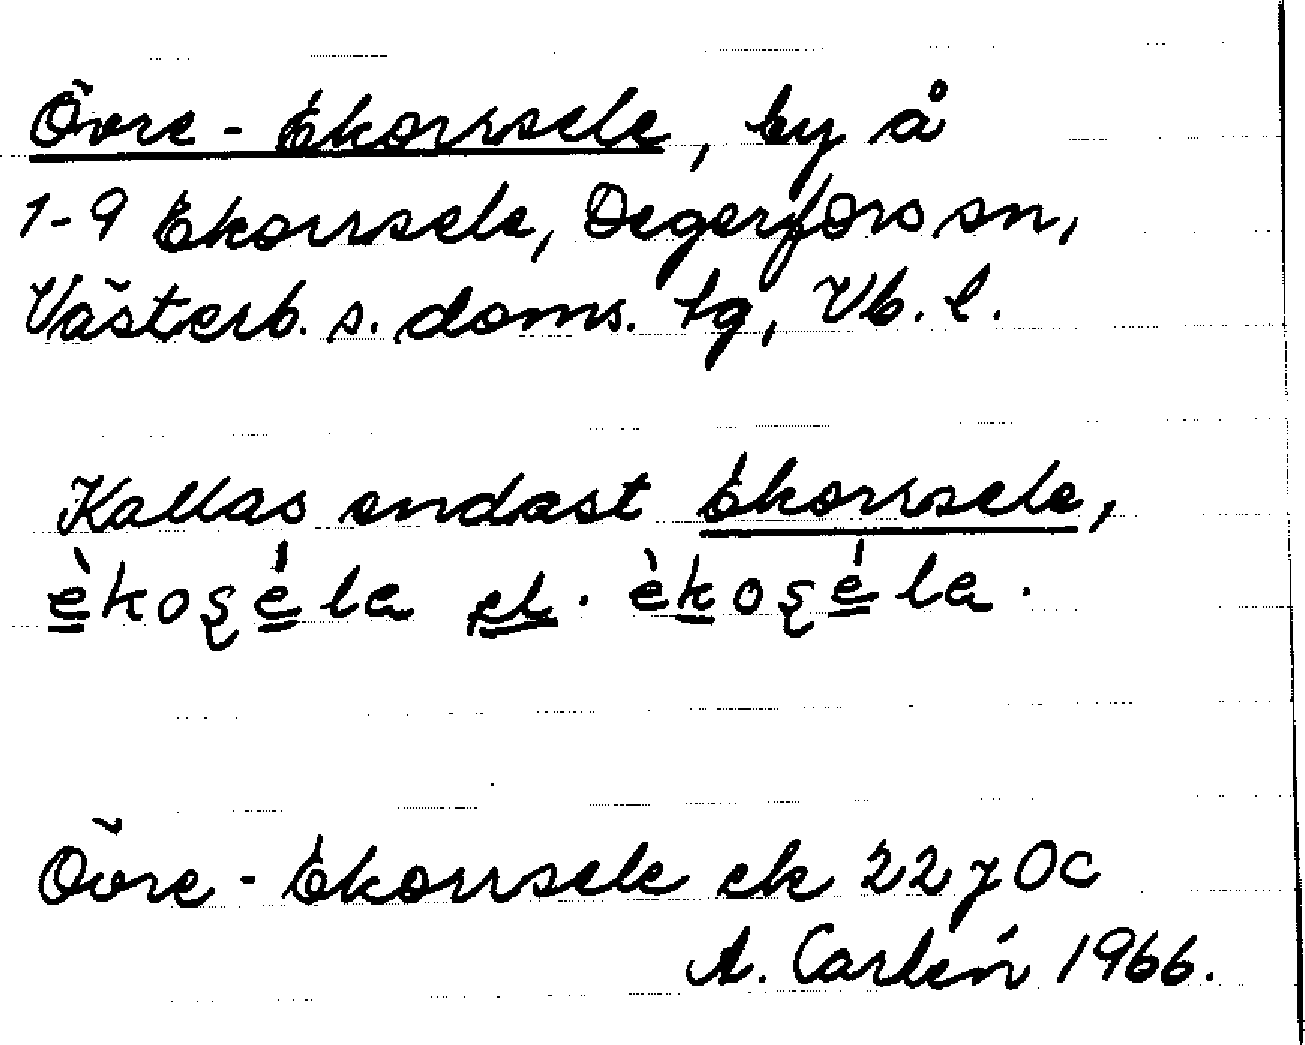 Övre-Ekorrsele, by å
1-9 Ekorrsele, Degerfors sn,
Västerb. s. doms. tg, Vb. l.
Kallas endast Ekorrsele,
èkoʂéla el. èkoʂéla.
Övre-Ekorrsele ek 22 7 0c
A. Carlén 1966.